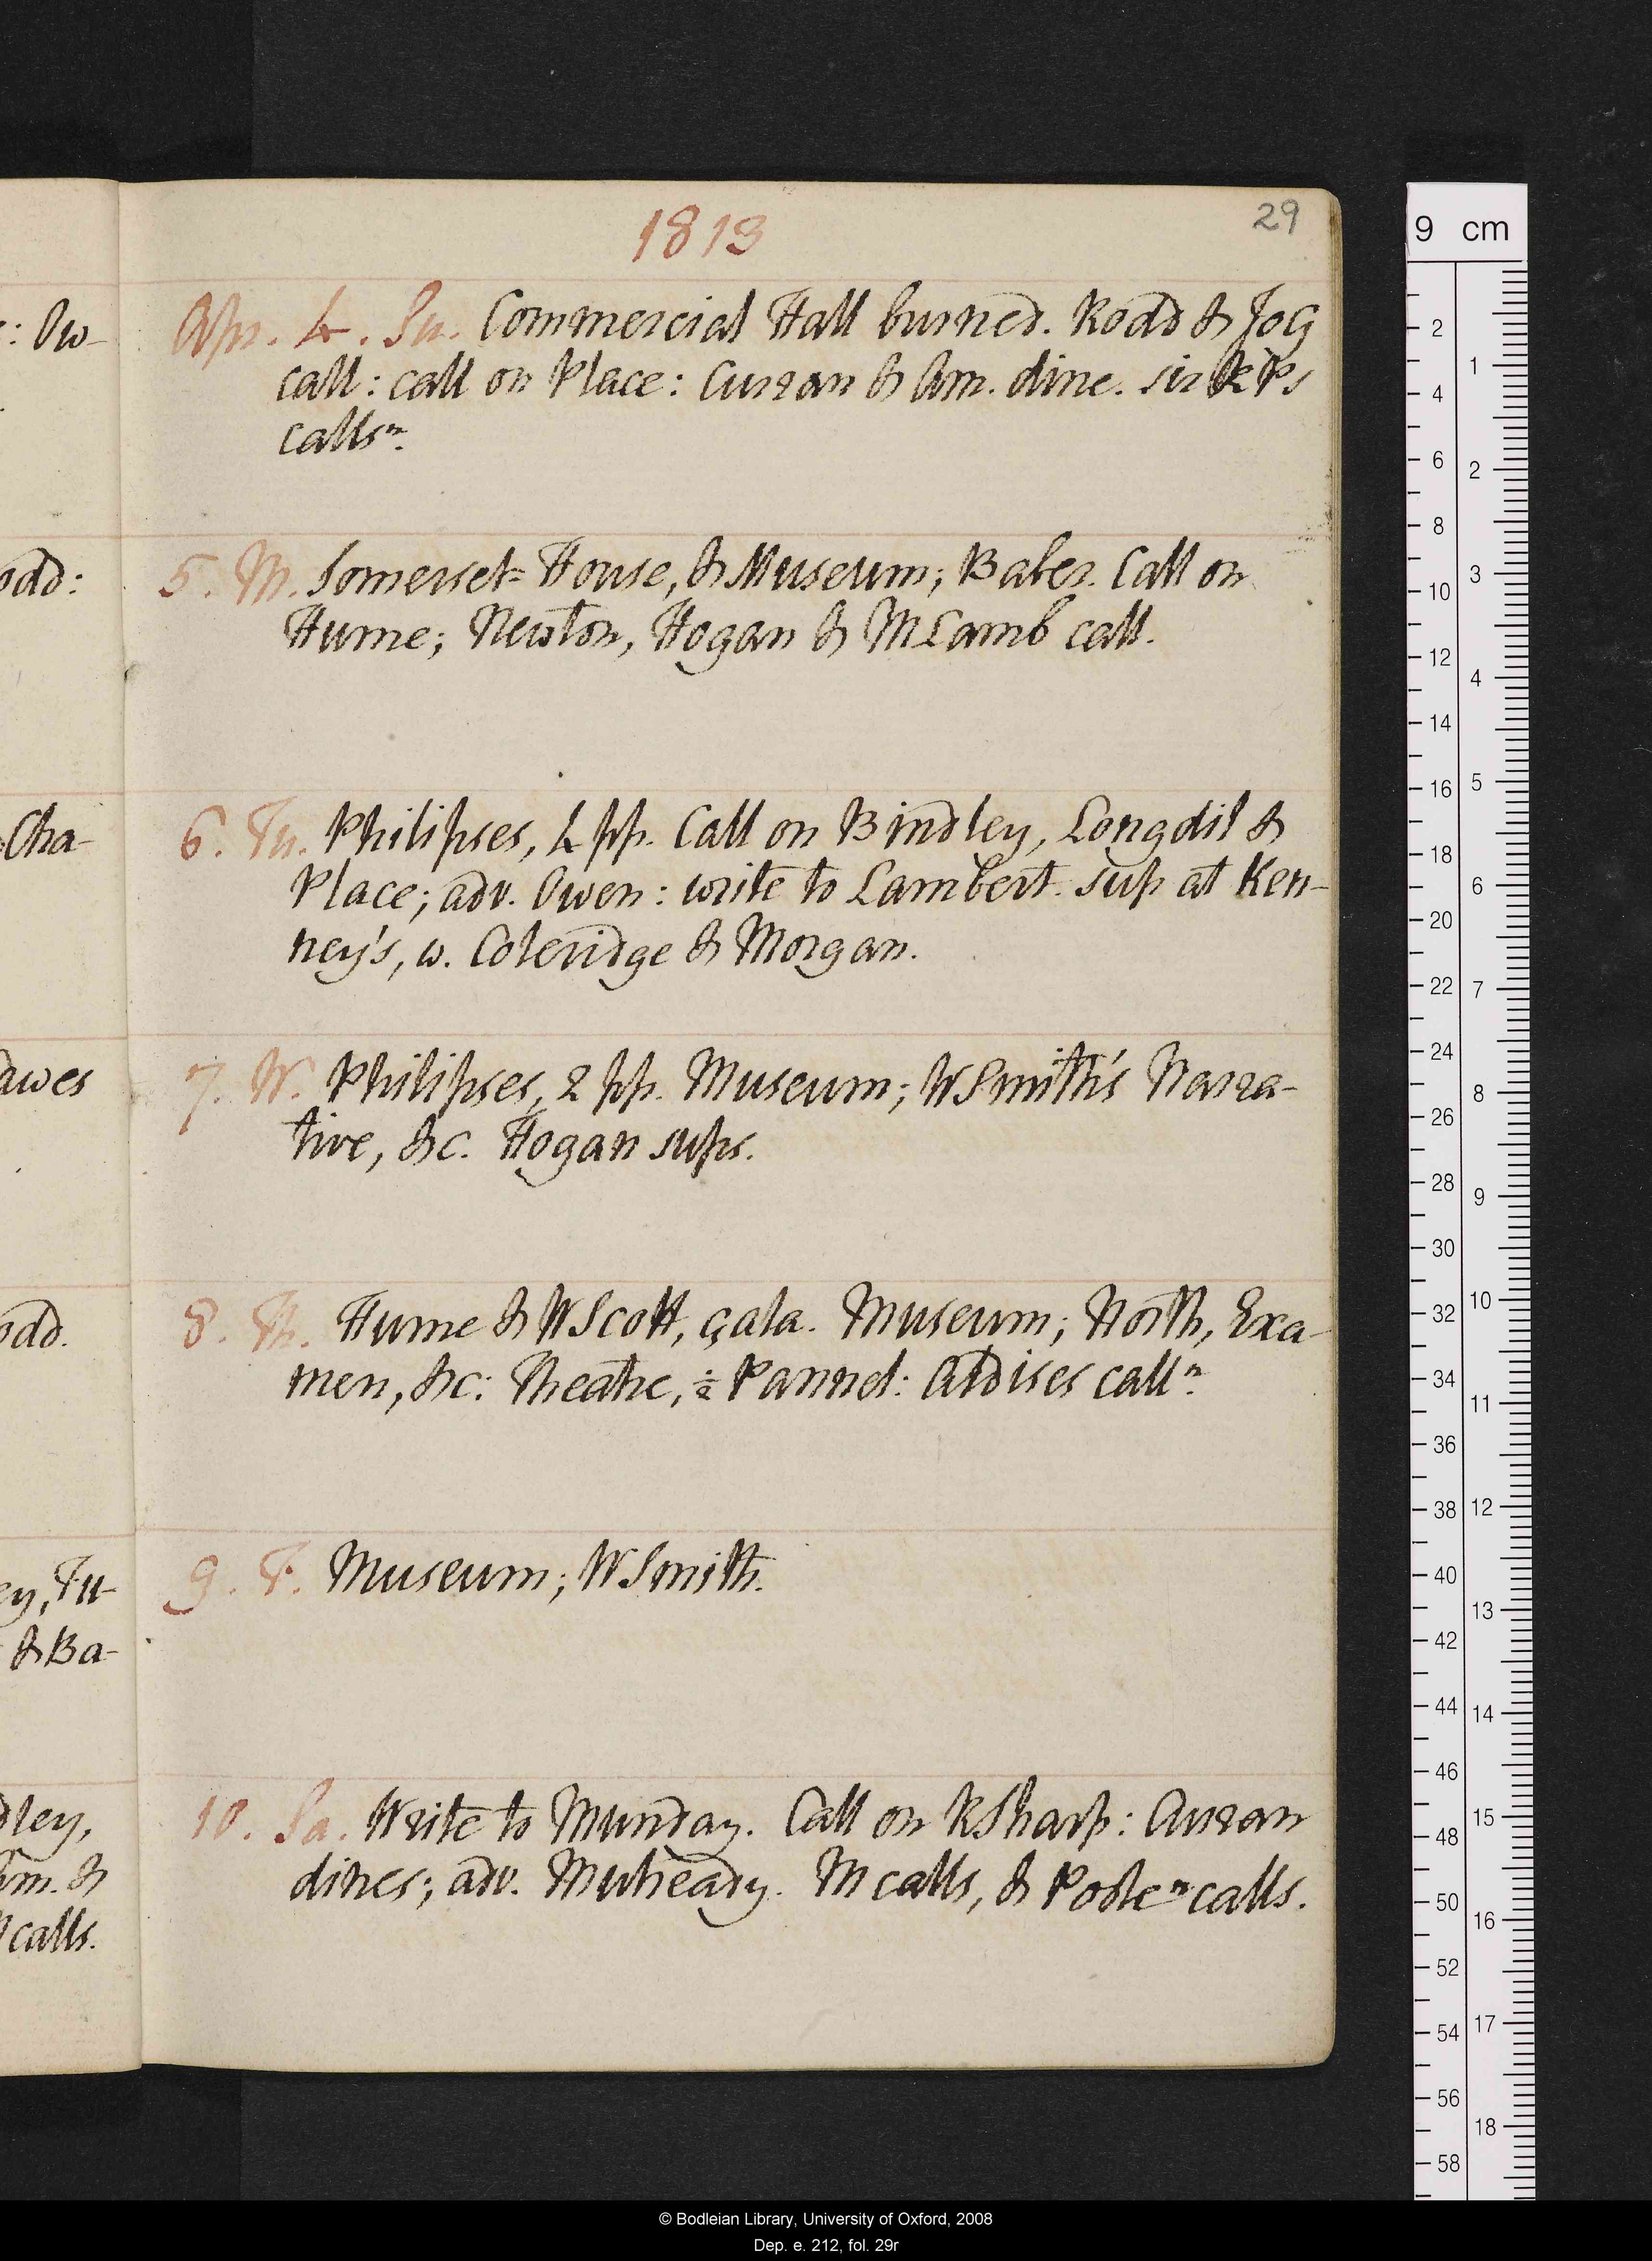 1813
29
Apr. 4. Su. Commercial Hall burned. Rodd & JoG
call: call on Place: Curran & Am. dine. sir R Ps
callsⁿ.
5. M. Somerset-House, & Museum; Baber. Call on
Hume; Newton, Hogan & MLamb call.
6. Tu. Philipses, 4 pp. Call on Bindley, Longdil &
Place; adv. Owen: write to Lambert. Sup at Ken-
ney's, w. Coleridge & Morgan.
7. W. Philipses, 2 pp. Museum; WSmith's Narra-
tive, &c. Hogan sups.
8. Th. Hume & WScott, çala. Museum; North, Exa-
men, &c: Theatre, ½ Pannel: Aldises callⁿ.
9. F. Museum; WSmith.
10. Sa. Write to Munday. Call on RSharp: Curran
dines; adv. Mulready. M calls, & Pooleⁿ calls.
: Ow-
odd:
Cha-
awes
odd.
ey, Tu-
& Ba-
dley,
Am. &
calls.
9 cm
2
4
6
8
10
12
14
16
18
20
22
24
26
28
30
32
34
36
38
40
42
44
46
48
50
52
54
56
58
1
2
3
4
5
6
7
8
9
10
11
12
13
14
15
16
17
18
© Bodleian Library, University of Oxford, 2008
Dep. e. 212, fol. 29r